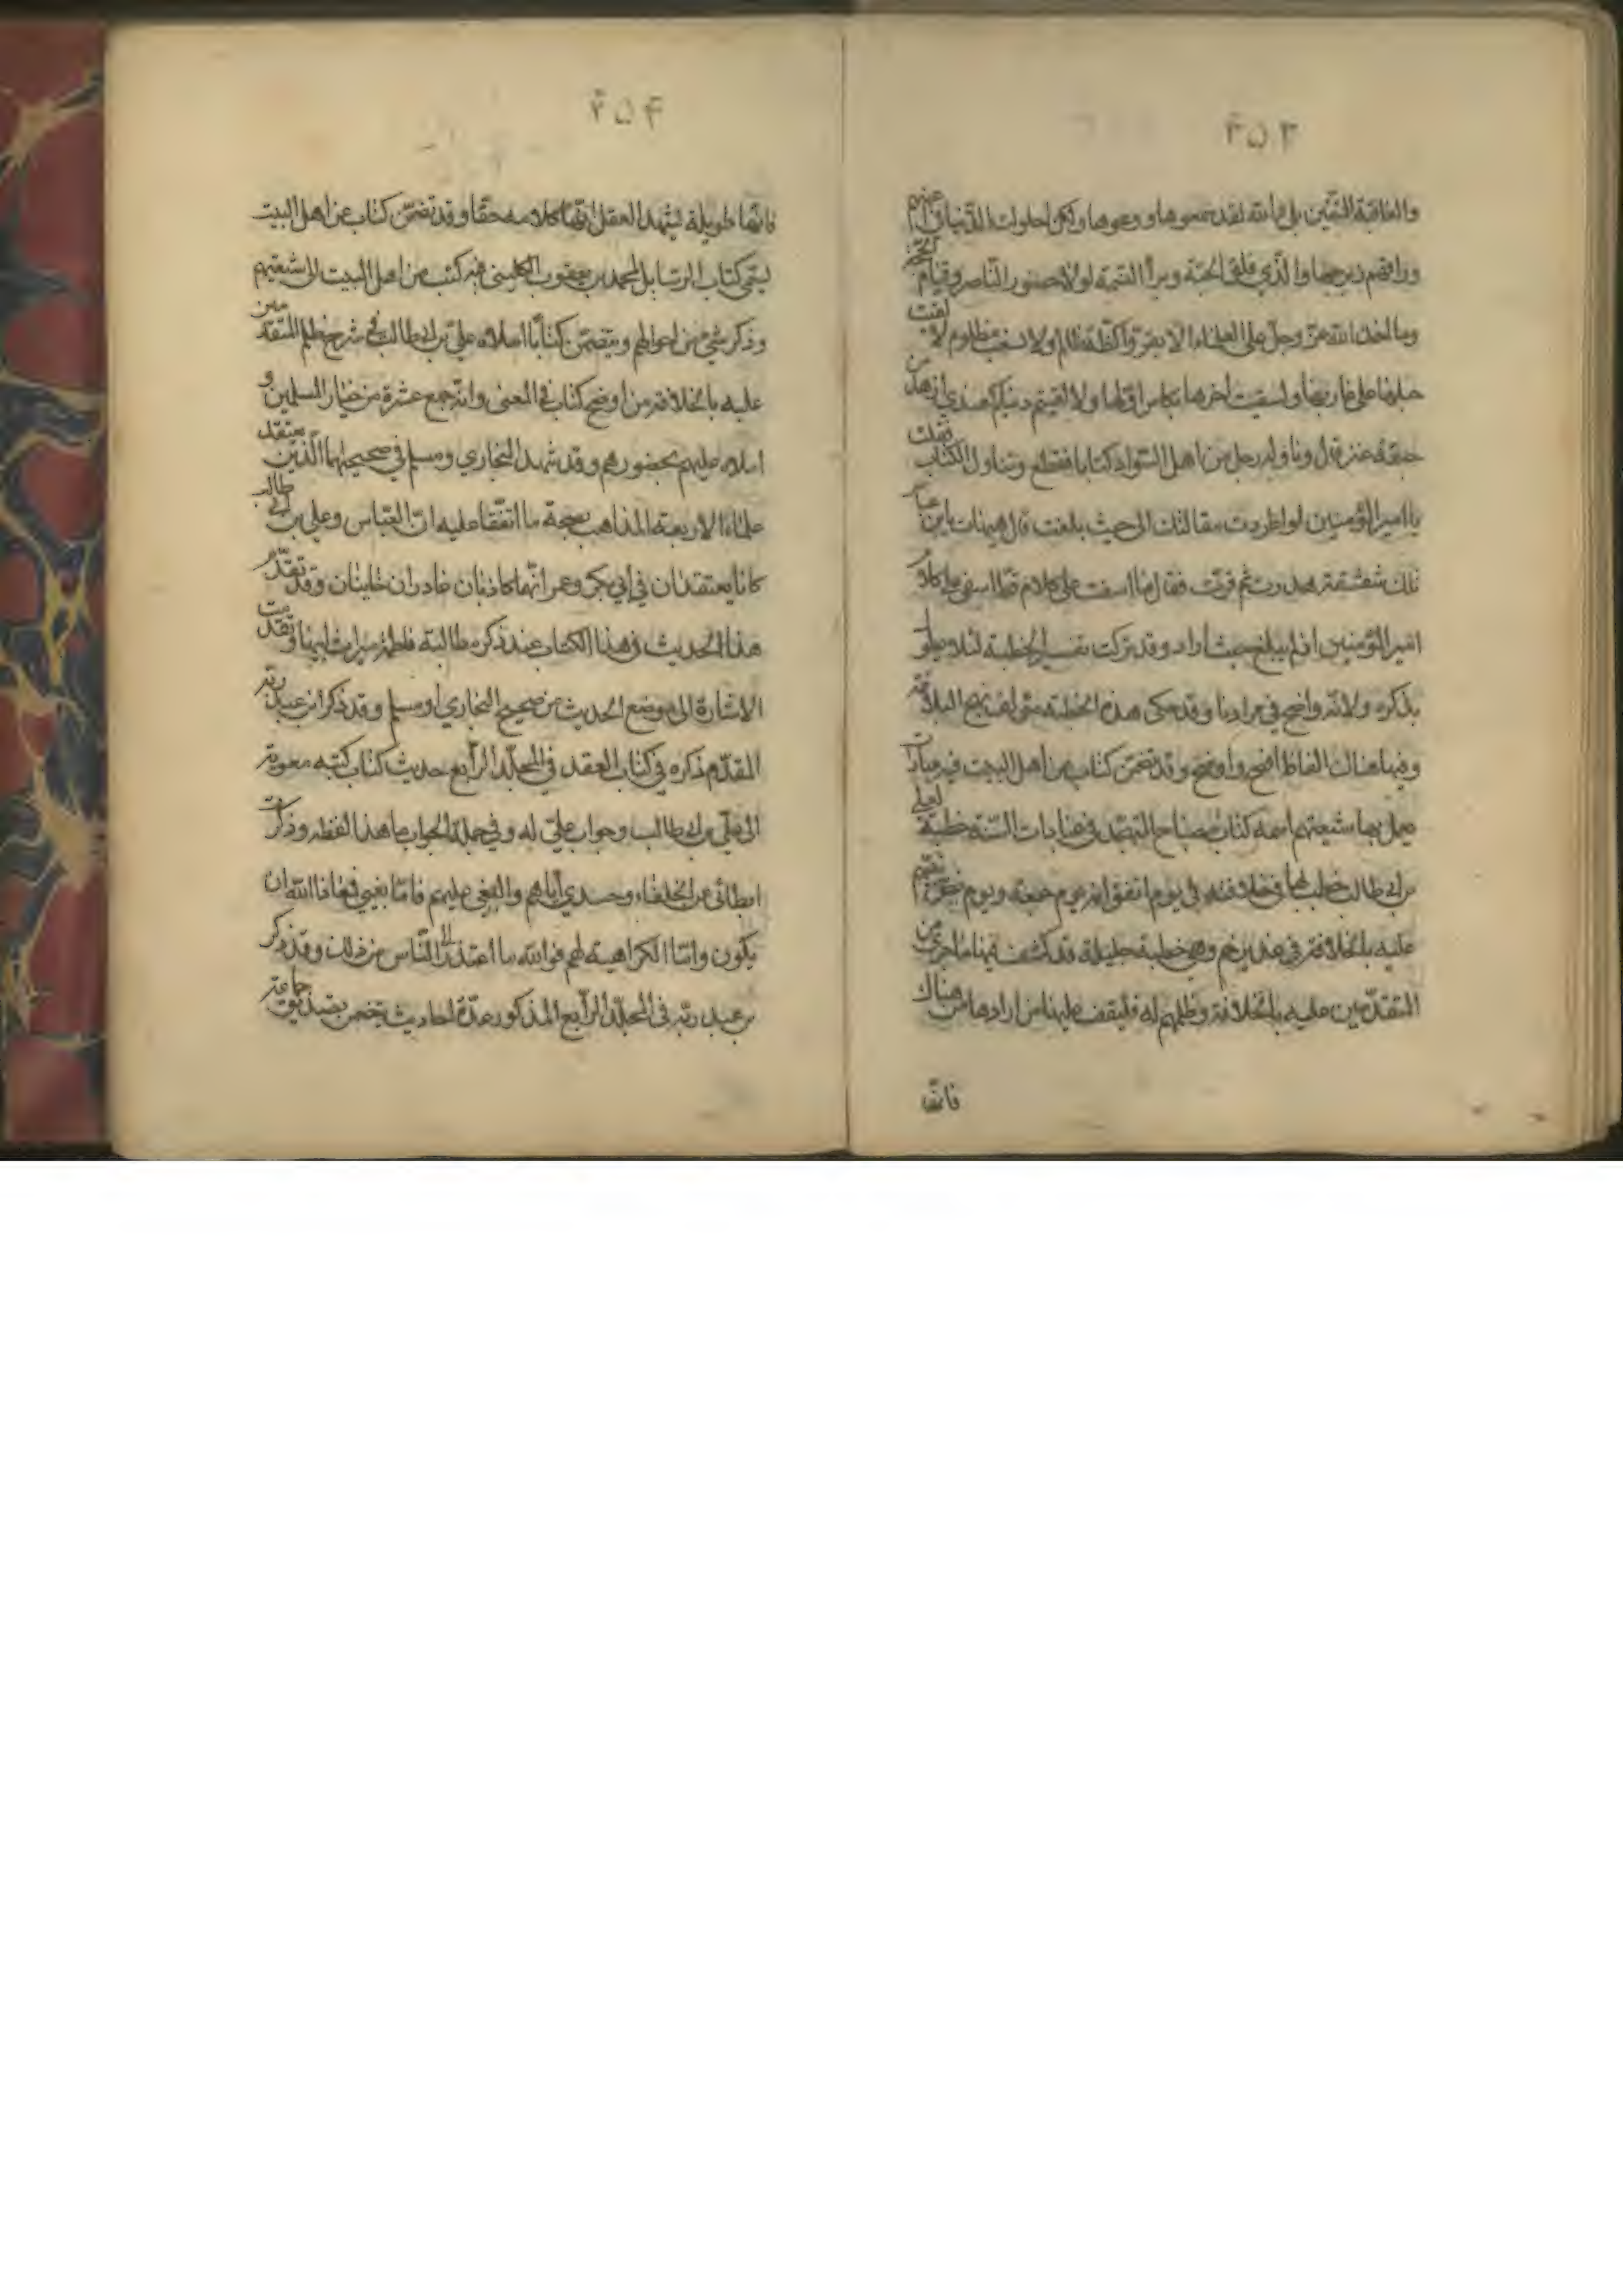 ۲۵۳
والعاقبة للمتقين بلى والله لقد سمعوها ووعوها ولكن احلولت الدنيا في اعينهم
وراقهم زبرجها والذي فلق الحبة وبرأ النسمة لولا حضور الناصر وقيام الحجة
وما اخذ الله عز وجل على العلماء الا يقروا كظة ظالم ولا سغب مظلوم لالقيت
حبلها على غاربها ولسقيت اخرها بكاس اولها ولا لفيتم دنياكم عندي ازهد من
عنز قال وناوله رجل من اهل السواد كتابا فقطع وتناول الكتاب فقلت
يا امير المؤمنين لو اطردت مقالتك الى حيث بلغت قال هيهات يا بن عباس
تلك شقشقة هدرت ثم قرت فقال ما اسفت على كلام قط اسفي على كلام
امير المؤمنين اذ لم يبلغ حيث اراد وقد تركت تفسير الخطبة لئلا يطول
بذكره ولانه واضح في مرادنا وقد حكى هذه الخطبة مؤلف نهج البلاغة
وفيها هناك الفاظ افصح واوضح وقد تضمن كتاب من اهل البيت فيه عبادات
يعمل بها شيعتهم اسمه كتاب مصباح المتهجد في عبادات السنة خطبة لعلي
بن ابي طالب خطب بها في خلافته في يوم اتفق انه يوم جمعة ويوم
عليه بالخلافة في غدير خم وهي خطبة جليلة قد كشف فيها ما جرى من
المتقدمين عليه بالخلافة وظلمهم له فليقف عليها من ارادها من هناك
فانها
۲۵۴
فانها طويلة يشهد العقل انها كلامه حقا وقد تضمن كتاب عن اهل البيت
يسمى كتاب الرسايل لمحمد بن يعقوب الكليني فيه كتب من اهل البيت الى شيعتهم
وذكر شيء من احوالهم ويتضمن كتابا املاه علي بن ابي طالب في شرح ظلم المتقدمين
عليه بالخلافة من اوضح كتاب في المعنى وانه جمع عشرة من خيار المسلمين و
املاه عليهم بحضورهم وقد شهد البخاري ومسلم في صحيحيهما الذين يعتقد
علماء الاربعة المذاهب بصحة ما اتفقا عليه ان العباس وعلي بن ابي طالب
كانا يعتقدان في ابي بكر وعمر انهما كاذبان غادران خاينان وقد تقدم
هذا الحديث في هذا الكتاب عند ذكر مطالبة فاطمة ميراث ابيها وتقدمت
الاشارة الى موضع الحديث من صحيح البخاري ومسلم وقد ذكر ابن عبد ربه
المقدم ذكره في كتاب العقد في المجلد الرابع حديث كتاب كتبه معوية
الى علي بن ابي طالب وجواب علي له وفي جملة الجواب ما هذا لفظه وذكرت
ابطائي عن الخلفاء وحسدي اياهم والبغي عليهم فاما بغيي فمعاذ الله ان
يكون واما الكراهية لهم فوالله ما اعتذر الى الناس من ذلك وقد ذكر
بن عبد ربه في المجلد الرابع المذكور عدة احاديث تتضمن جماعة